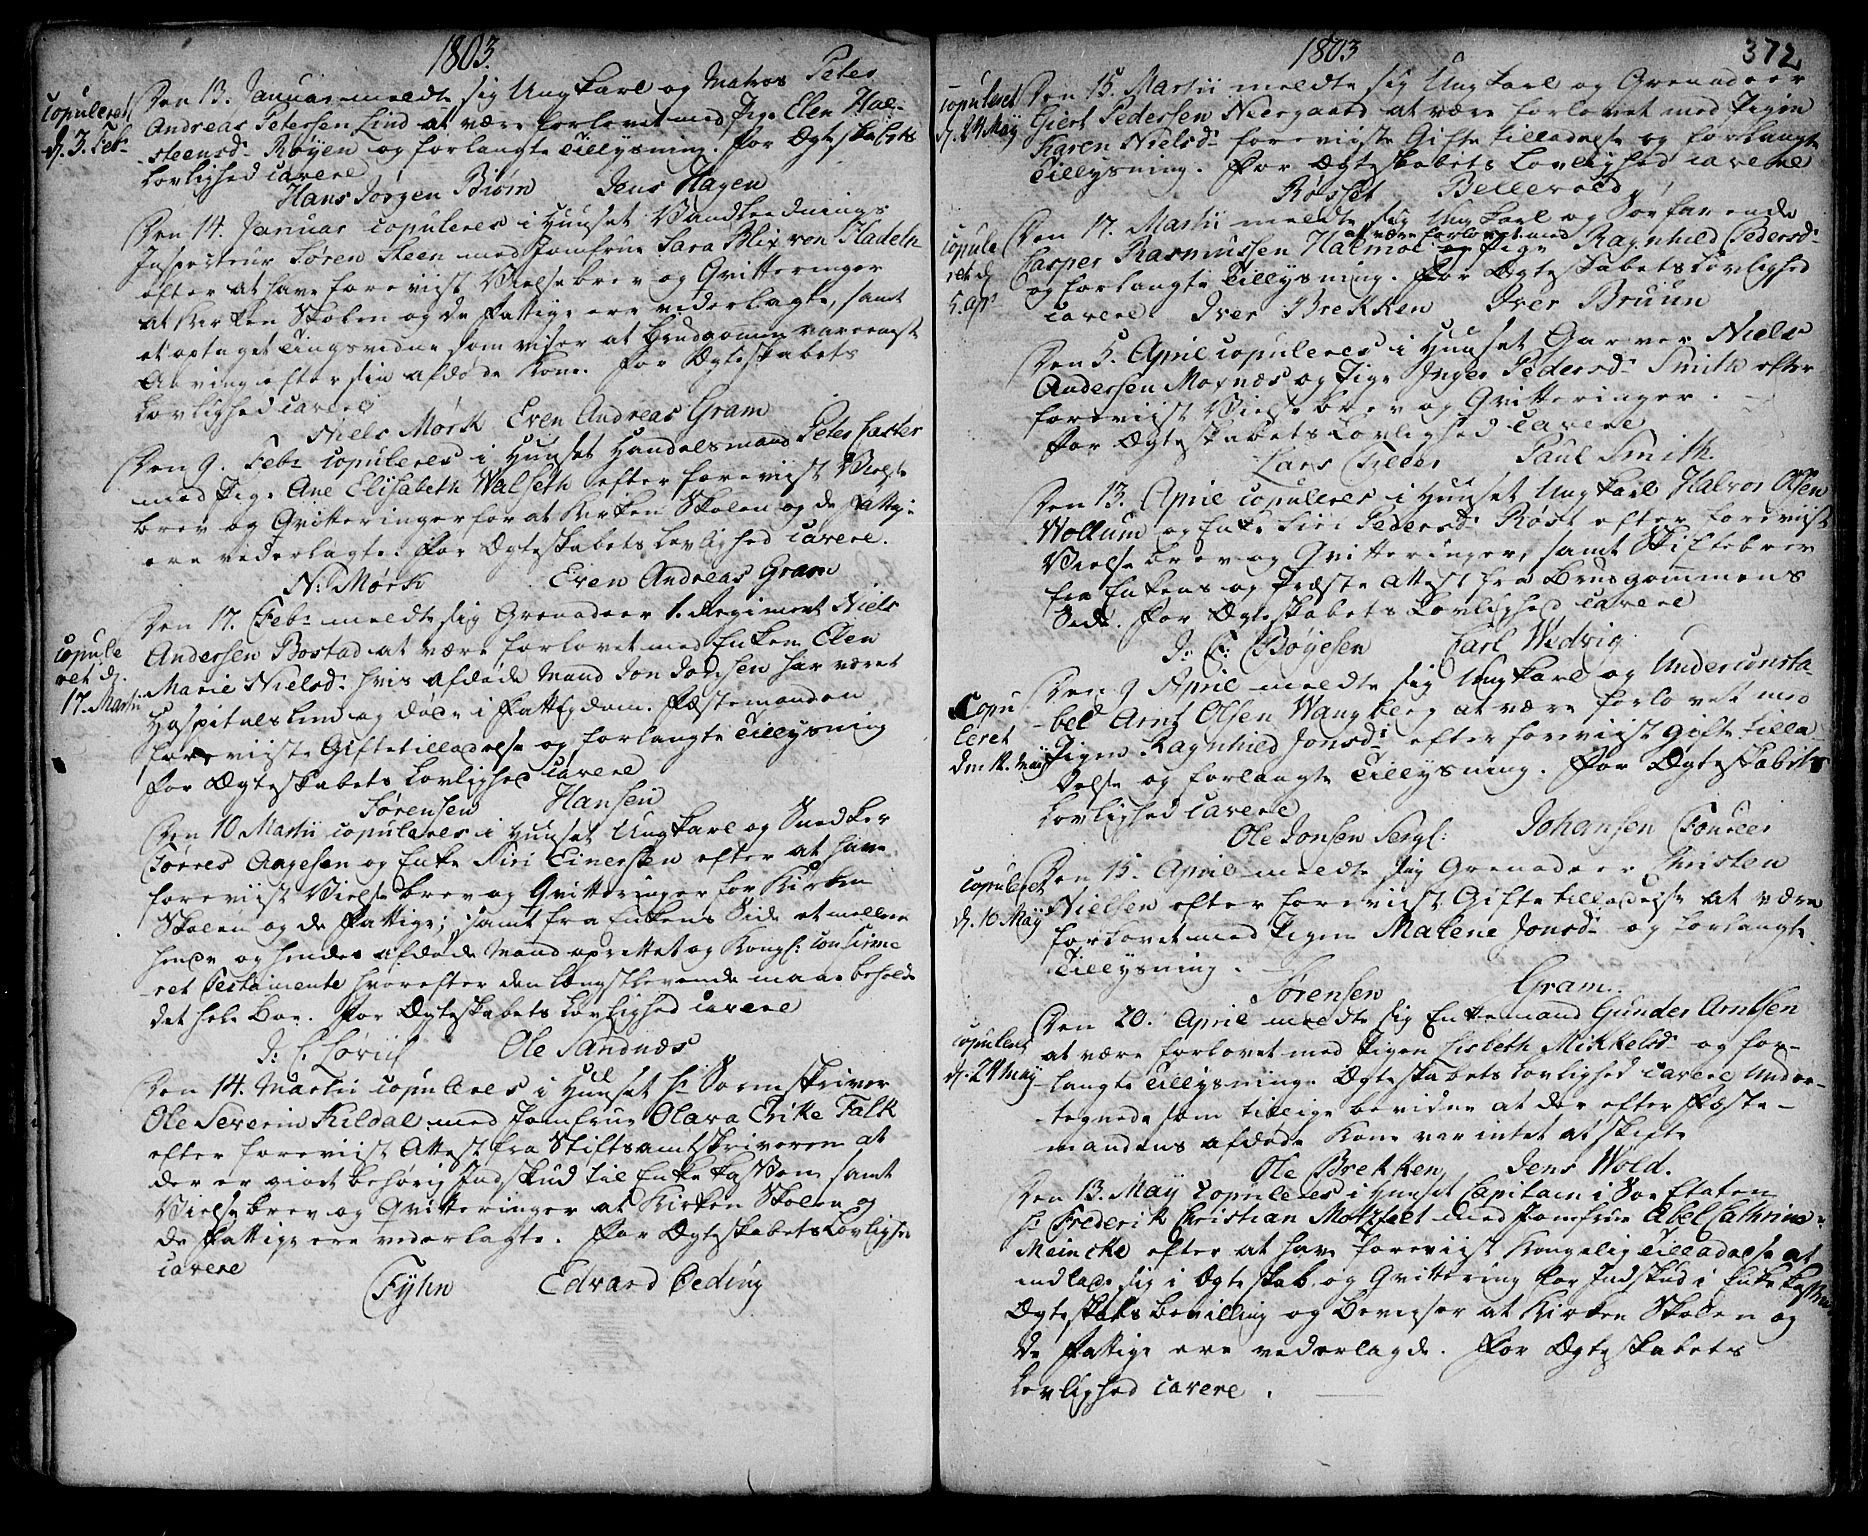 1803.
Den 13. Januar meldte sig Ungkarl og Matros Peter
copuleret
d. 3. Febr
Andreas Petersen Lind at være forlovet med Pige Elen Hal-
steensdr Røyen og forlangte Tillysning. For Ægteskabets
Lovlighed cavere
Hans Jørgen Biørn Jens Hagen
Den 14. Januar copuleres i Huuset Vandlednings
Inspecteur Søren Steen med Jomfrue Sara Blix von Hadeln
efter at have foreviist Vielsebrev og Qvitteringer
at Kirken Skolen og de Fattige ere vederlagte, samt
et optaget Tingsvidne som viser at Brudgommen var eeneste
Arving efter sin afdøde Kone. For Ægteskabets
Lovlighed cavere
Niels Mørk Even Andreas Gram
Den 9. Febr copuleres i Huuset Handelsmand Peter
med Pige Ane Elisabeth Walseth efter foreviist Vielse
brev og Qvitteringer for at Kirken Skolen og de Fattige
ere vederlagte. For Ægteskabets Lovlighed cavere.
N: Mørk Even Andreas Gram
Den 17. Febr meldte sig Grenadeer 1. Regiment Niels
copule
ret d.
17. Martii
Andersen Bostad at være forlovet med Enken Elen
Marie Nielsdr hvis afdøde Mand Jon Jonsen har været
Hospitalslem og døde i Fattigdom. Fæstemanden
foreviiste Giftetilladelse og forlangte Tillysning
For Ægteskabets Lovlighed cavere
Sørensen Hansen
Den 10 Martii copuleres i Huuset Ungkarl og Snedker
Tørres Aagesen og Enke Siri Einersen efter at have
foreviist Vielsebrev og Qvitteringer for Kirken
Skolen og de Fattige; samt fra Enkens Side et mellem
hende og hendes afdøde Mand oprettet og Kongl: confirme
ret Testamente hvorefter den længstlevende maae beholde
det hele Boe. For Ægteskabets Lovlighed cavere
Ole Sandnæs
Den 14. Martii copuleres i Huuset Hr Sorenskriver
Ole Severin Kildal med Jomfrue Olava Erike Falk
efter foreviist Attest fra Stiftsamtskriveren at
der er giort behørig Indskud til Enke Kassen samt
Vielsebrev og Qvitteringer at Kirken Skolen og
de Fattige ere vederlagte. For Ægteskabets Lovlighed
cavere
Fyhn Edvard Beding
1803
372
copuleret
d. 24 May
Den 15. Martii meldte sig Ungkarl og Grenadeer
Giert Pedersen Neergaard at være forlovet med Pigen
Karen Nielsdr foreviiste Giftetilladelse og forlangte
Tillysning. For Ægteskabets Lovlighed cavere
Rosset Bellevold
copule
ret d.
5. Apr
Den 17. Martii meldte sig Ungkarl og Søefarende
at være forlovet med
Casper Rasmussen Halmøe og Pige Ragnhild Pedersdr
og forlangte Tillysning. For Ægteskabets Lovlighed
cavere Iver Brekken Iver Bruun
Den 5. April copuleres i Huuset Garver Niels
Andersen Moxnæs og Pige Inger Pedersdr Smith efter
foreviist Vielsebrev og Qvitteringer.
For Ægteskabets Lovlighed cavere
Lars Paul Smith.
Den 13. April copuleres i Huuset Ungkarl Halvor Olsen
Wollum og Enke Siri Pedersdr Røst efter foreviist
Vielsebrev og Qvitteringer, samt Skiftebrev
fra Enkens og Præste Attest fra Brudgommens
Side. For Ægteskabets Lovlighed cavere
J: C: Bøyesen Carl Widvig
copu
leret
den 12. May
Den 9 April meldte sig Ungkarl og Underconsta-
bel Arnt Olsen Wangberg at være forlovet med
Pigen Ragnhild Jonsdr efter foreviist Giftetilla-
delse og forlangte Tillysning. For Ægteskabets
Lovlighed cavere
Ole Jonsen Johansen
copuleret
d. 10 May
Den 15. April meldte sig Grenadeer Christen
Nielsen efter foreviist Giftetilladelse at være
forlovet med Pigen Malene Jonsdr og forlangte
Tillysning.
Sørensen Gram.
copuleret
d. 24 May
Den 20. April meldte sig Enkemand Gunder Arntsen
at være forlovet med Pigen Lisbeth Mikkelsdr og for-
langte Tillysning. Ægteskabets Lovlighed cavere under-
tegnede som tillige bevidne at der efter Fæste-
mandens afdøde Kone var intet at skifte
Ole Brekken Jens Wold.
Den 13. May copuleres i Huuset Capitain i Søe Etaten
Hr Frederik Christian Motzfelt med Jomfrue Abel Cathrine
Meincke efter at have foreviist Kongelig Tilladelse at
indlade sig i Ægteskab og Qvittering for Indskud i Enke Kassen
Ægteskabs Bevilling og Beviiser at Kirken Skolen og
de Fattige ere vederlagde. For Ægteskabets
Lovlighed cavere.